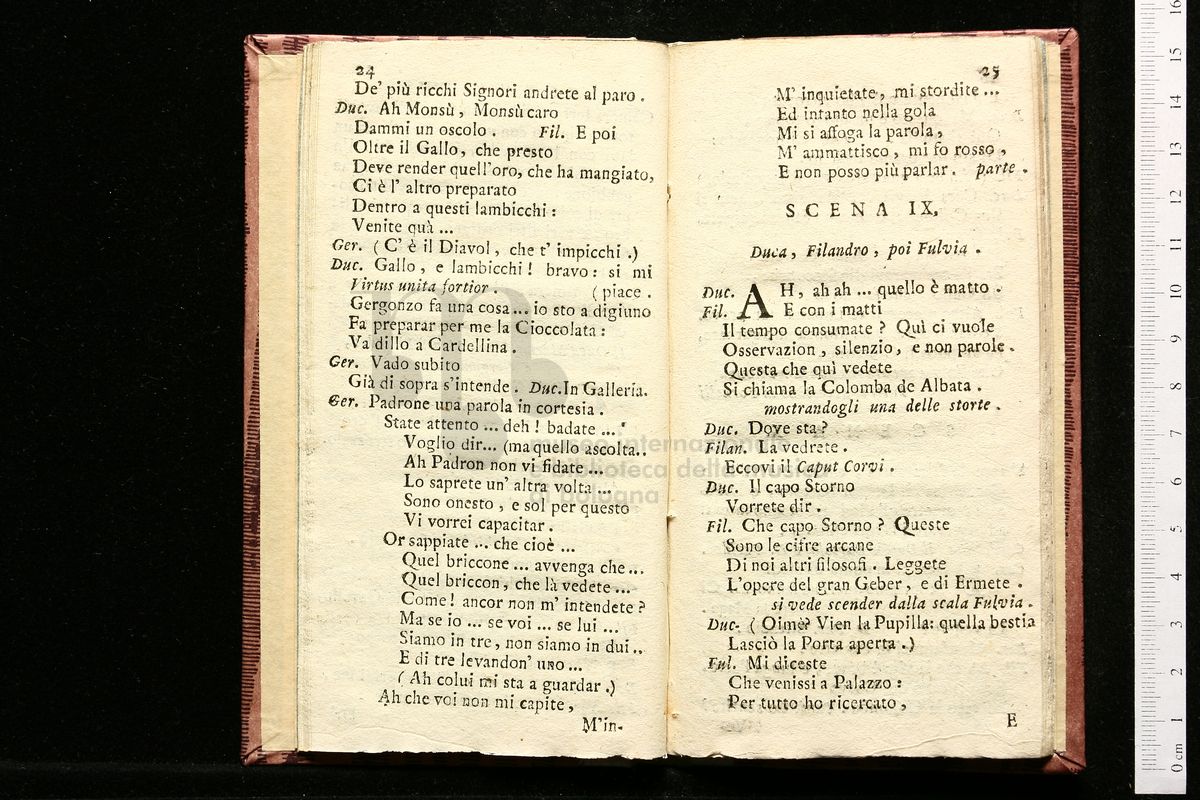 24
De' più ricchi Signori andrete al paro .
Duc. Ah Monsù , Monsù caro
Dammi un oscolo . Fil. E poi
Oltre il Gallo, che presto
Deve render quell'oro, che ha mangiato,
Ci è l' altro preparato
Dentro a questi lambicchi :
Venite quà ...
Ger. ( C' è il Diavol , che t' impicchi .)
Duc. Gallo , e lambicchi ! bravo : si mi
Virtus unita fortior . ( piace .
Gergonzo fa una cosa ... io sto a digiuno
Fa preparar per me la Cioccolata :
Va dillo a Cardellina .
Ger. Vado subito
Già di sopra s'intende . Duc. In Gallería.
Ger. Padrone una parola in cortesia .
State attento ... deh ! badate ...
Voglio dir... (ma quello ascolta..
Ah Padron non vi fidate ...
Lo saprete un' altra volta ...
Sono onesto , e sol per questo
Vi vorrei capacitar .
Or sappiate ... che cioè ...
Quel briccone ... avvenga che ...
Quel briccon , che là vedete ...
Come ! ancor non m' intendete ?
Ma se io ... se voi ... se lui ...
Siamo in tre , non siamo in dui ..
E di tre levandon' uno ...
( Ah colui mi sta a guardar .)
Ah che voi non mi capite ,
M'in-
25
M' inquietate , mi stordite ...
Ed intanto nella gola
Mi si affoga la parola ,
M' ammattisco , mi fo rosso ,
E non posso più parlar . parte .
SCENA IX.
Duca , Filandro , poi Fulvia .
Duc. AH , ah ah ... quello è matto .
Fil. E con i matti
Il tempo consumate ? Quì ci vuole
Osservazion , silenzio , e non parole .
Questa che quì vedete
Si chiama la Colomba de Albata .
mostrandogli una delle storte .
Duc. Dove sta ?
Filan. La vedrete .
Eccovi il Caput Corvi .
Duc. Il capo Storno
Vorrete dir .
Fil. Che capo Storno ? Queste
Sono le cifre arcane
Di noi altri filosofi . Leggete
L'opere del gran Geber , e di Ermete .
si vede scender dalla scala Fulvia .
Duc. ( Oimè? Vien la Pupilla: quella bestia
Lasciò la Porta aperta .)
Ful. Mi diceste
Che venissi a Palazzo :
Per tutto ho ricercato ,
E
museo internazionale
biblioteca della
di bologna
0 cm 1 2 3 4 5 6 7 8 9 10 11 12 13 14 15 16